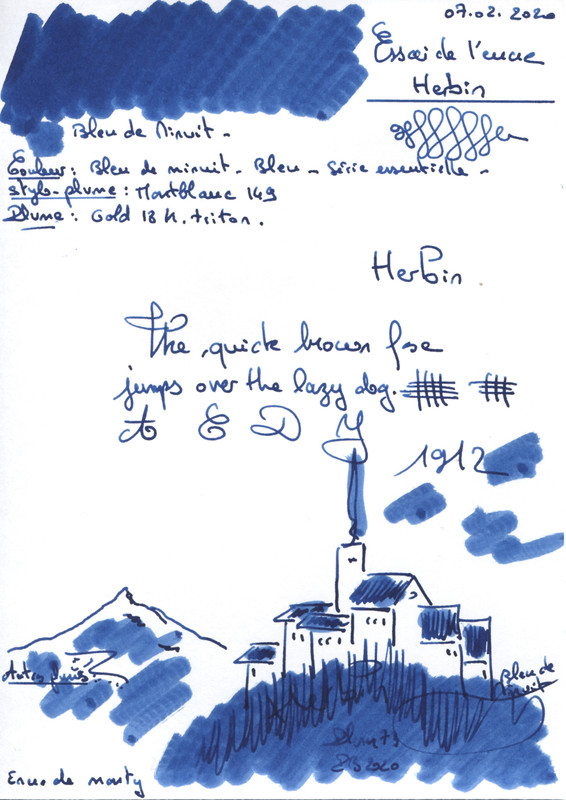 07.02.2020
Essai de l'encre
Herbin
Bleu de Minuit -
Couleur : Bleu de minuit - Bleu - Série essentielle -
stylo-plume : Montblanc 149
Plume : Gold 18 K. triton.
Herbin
The quick brown fox
jumps over the lazy dog.
A E D Y
1912
Bleu de
minuit
2020
Encre de